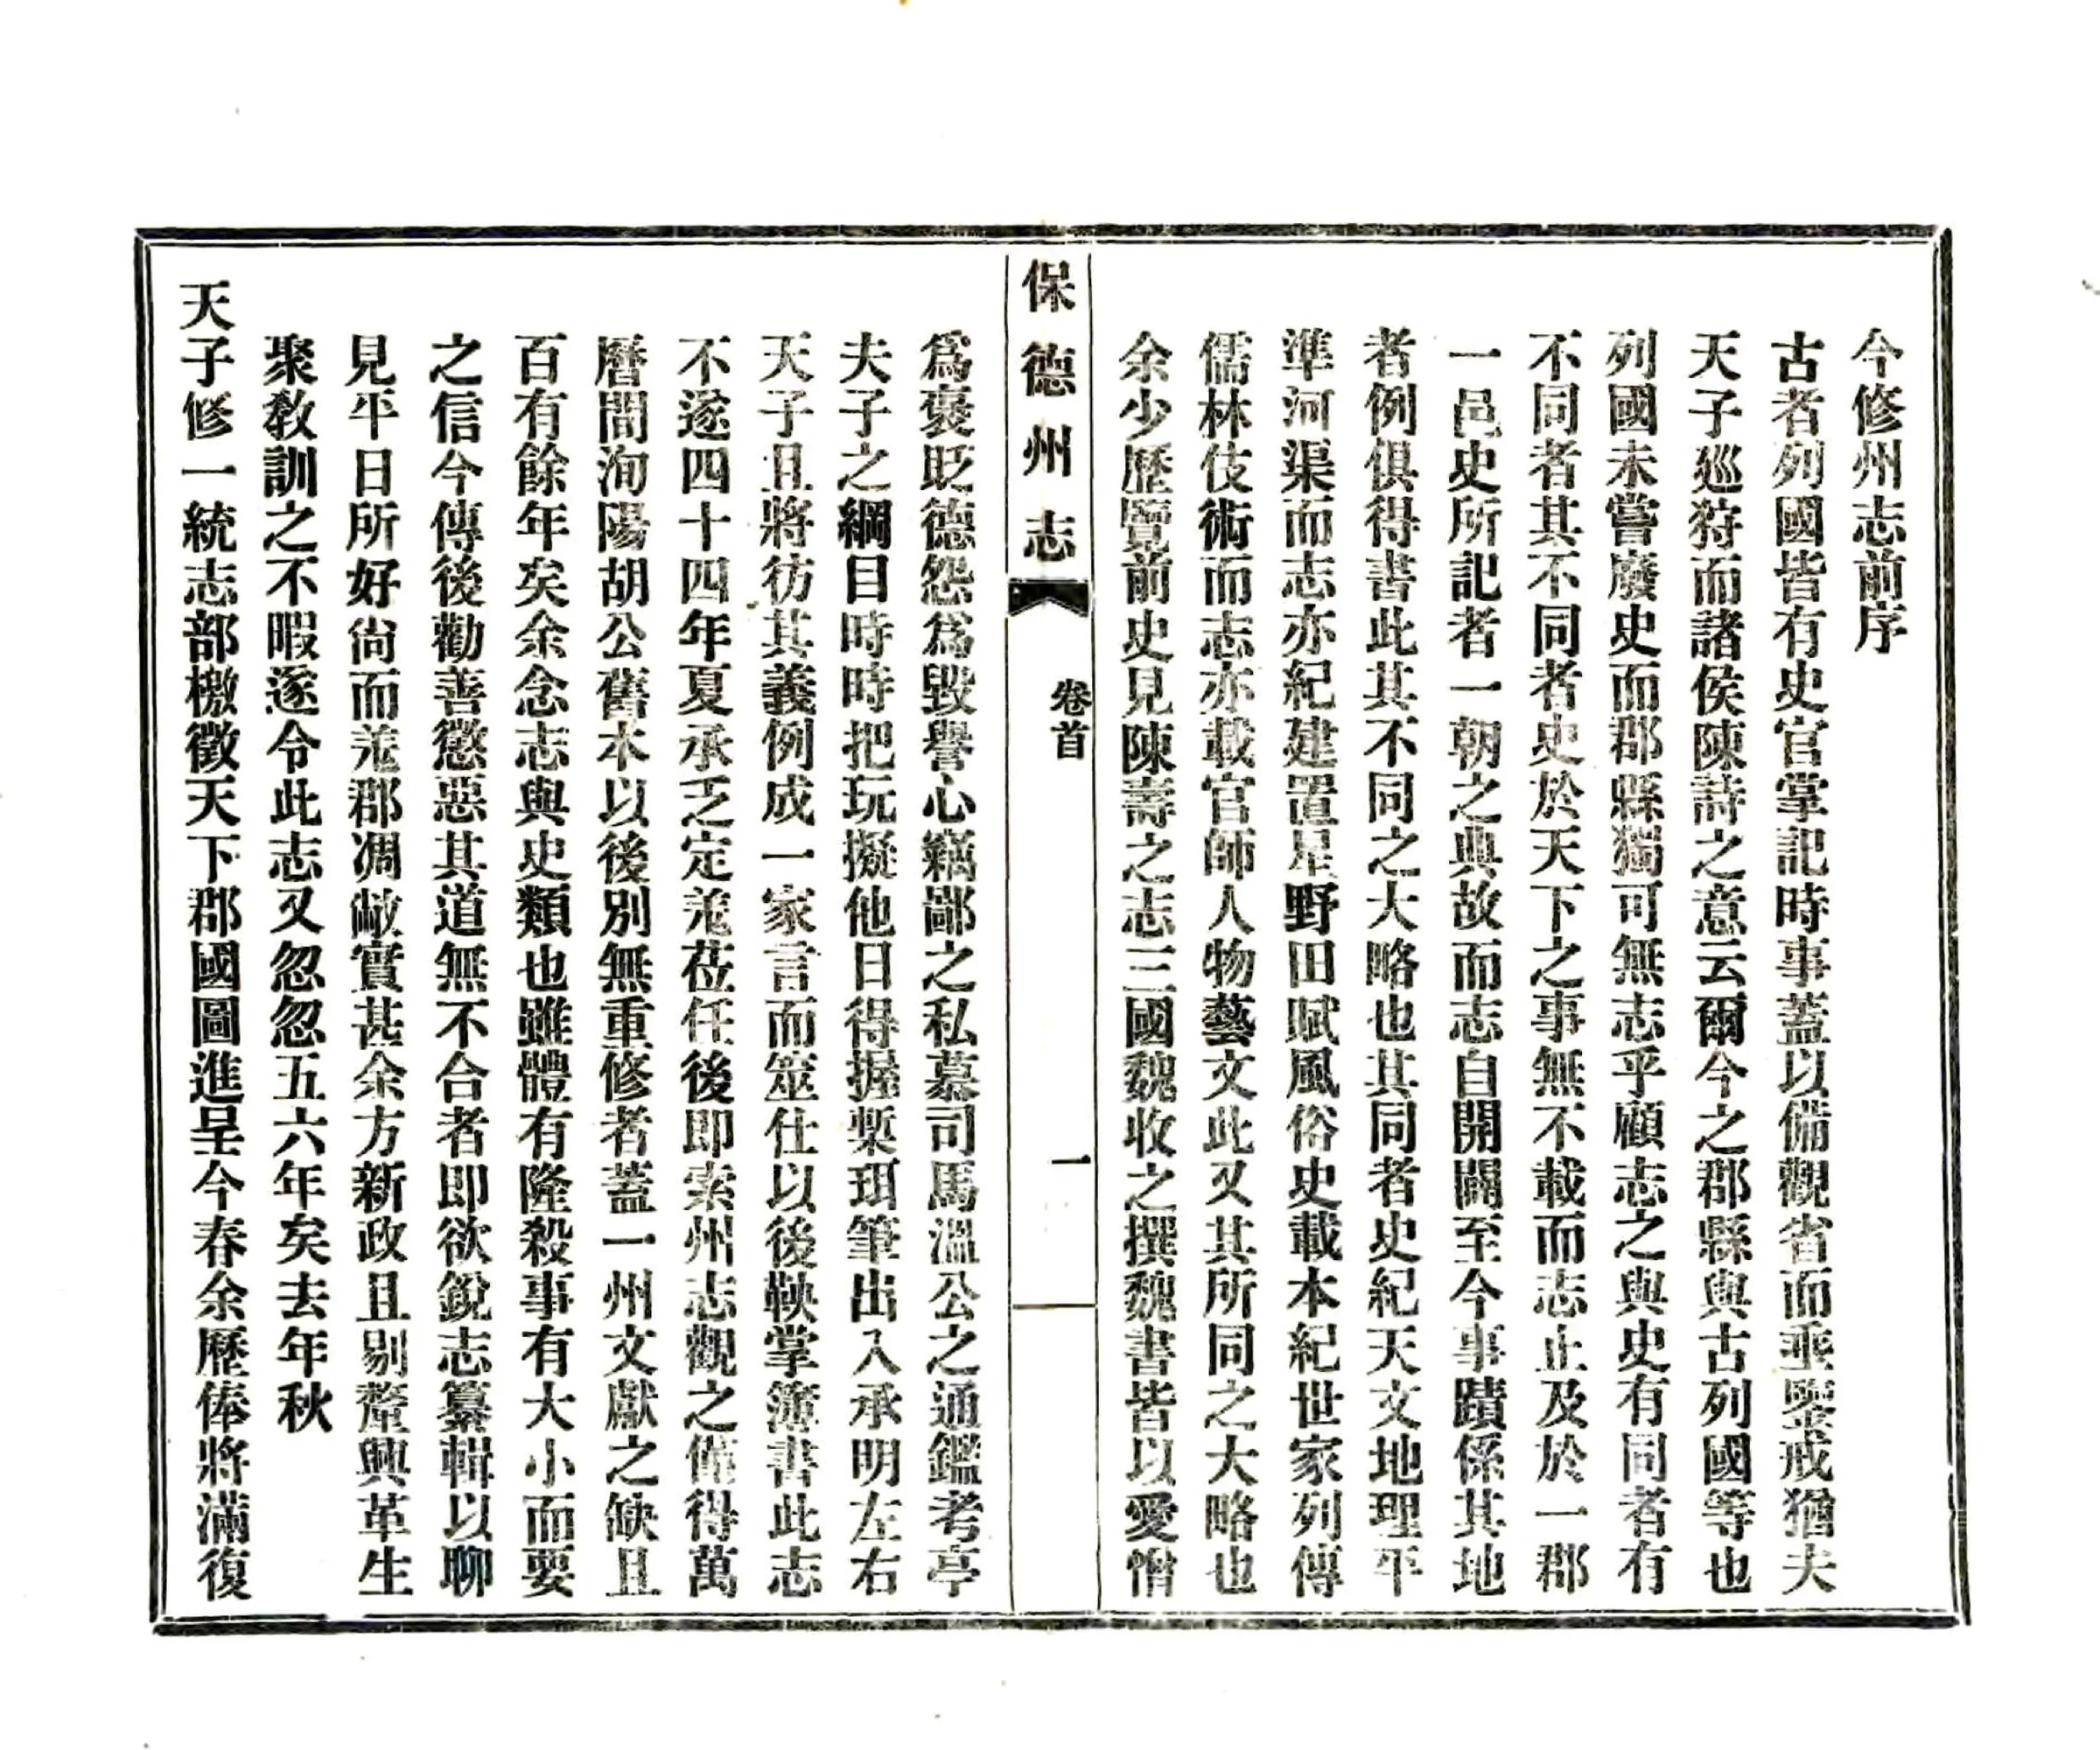 今修州志前序
古者列國皆有史官掌記時事蓋以備觀省而垂鑒戒猶夫
天子巡狩而諸侯陳詩之意云爾今之郡縣與古列國等也
列國未嘗廢史而郡縣獨可無志乎顧志之與史有同者有
不同者其不同者史於天下之事無不載而志止及於一郡
一邑史所記者一朝之典故而志自開闢至今事蹟係其地
者例俱得書此其不同之大略也其同者史紀天文地理平
準河渠而志亦紀建置星野田賦風俗史載本紀世家列傳
儒林伎術而志亦載官師人物藝文此又其所同之大略也
余少歷覽前史見陳壽之志三國魏收之撰魏書皆以愛憎
保德州志
卷首
一
爲褒貶德怨爲毀譽心竊鄙之私慕司馬溫公之通鑑考亭
夫子之綱目時時把玩擬他日得握槧珥筆出入承明左右
天子且將彷其義例成一家言而筮仕以後鞅掌簿書此志
不遂四十四年夏承乏定羗莅任後即索州志觀之僅得萬
曆間洵陽胡公舊本以後別無重修者蓋一州文獻之缺且
百有餘年矣余念志與史類也雖體有隆殺事有大小而要
之信今傳後勸善懲惡其道無不合者即欲銳志纂輯以聊
見平日所好尙而羗郡凋敝實甚余方新政且剔釐興革生
聚敎訓之不暇遂令此志又忽忽五六年矣去年秋
天子修一統志部檄徵天下郡國圖進呈今春余歷俸將滿復